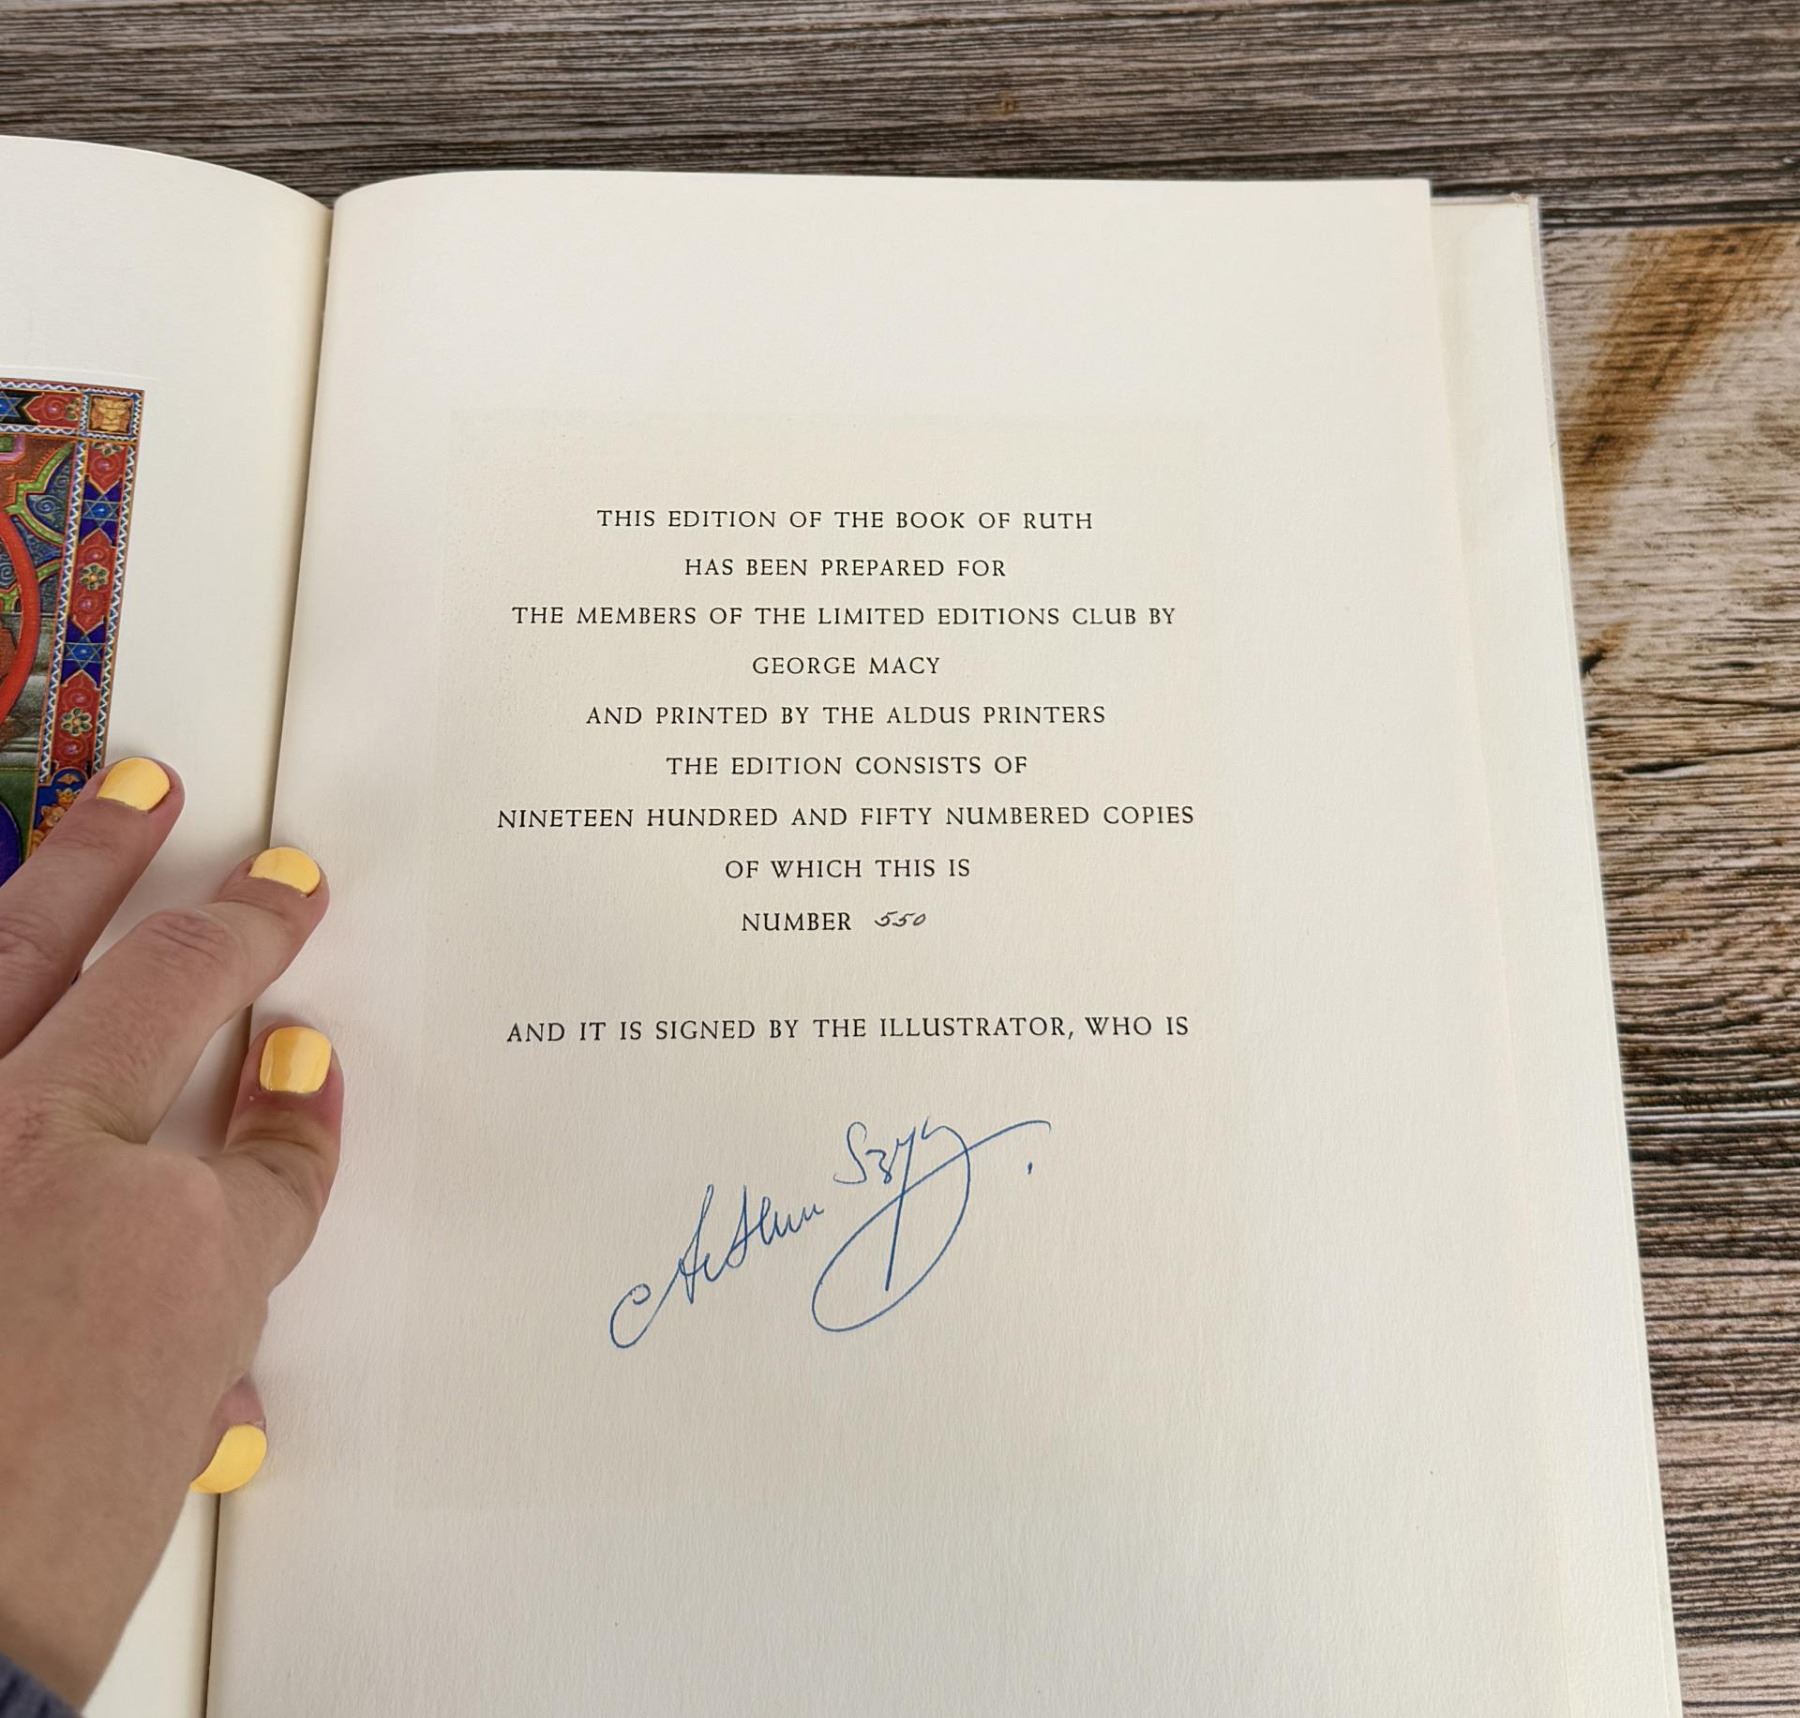 THIS EDITION OF THE BOOK OF RUTH
HAS BEEN PREPARED FOR
THE MEMBERS OF THE LIMITED EDITIONS CLUB BY
GEORGE MACY
AND PRINTED BY THE ALDUS PRINTERS
THE EDITION CONSISTS OF
NINETEEN HUNDRED AND FIFTY NUMBERED COPIES
OF WHICH THIS IS
NUMBER 550
AND IT IS SIGNED BY THE ILLUSTRATOR, WHO IS
Arthur Szyk